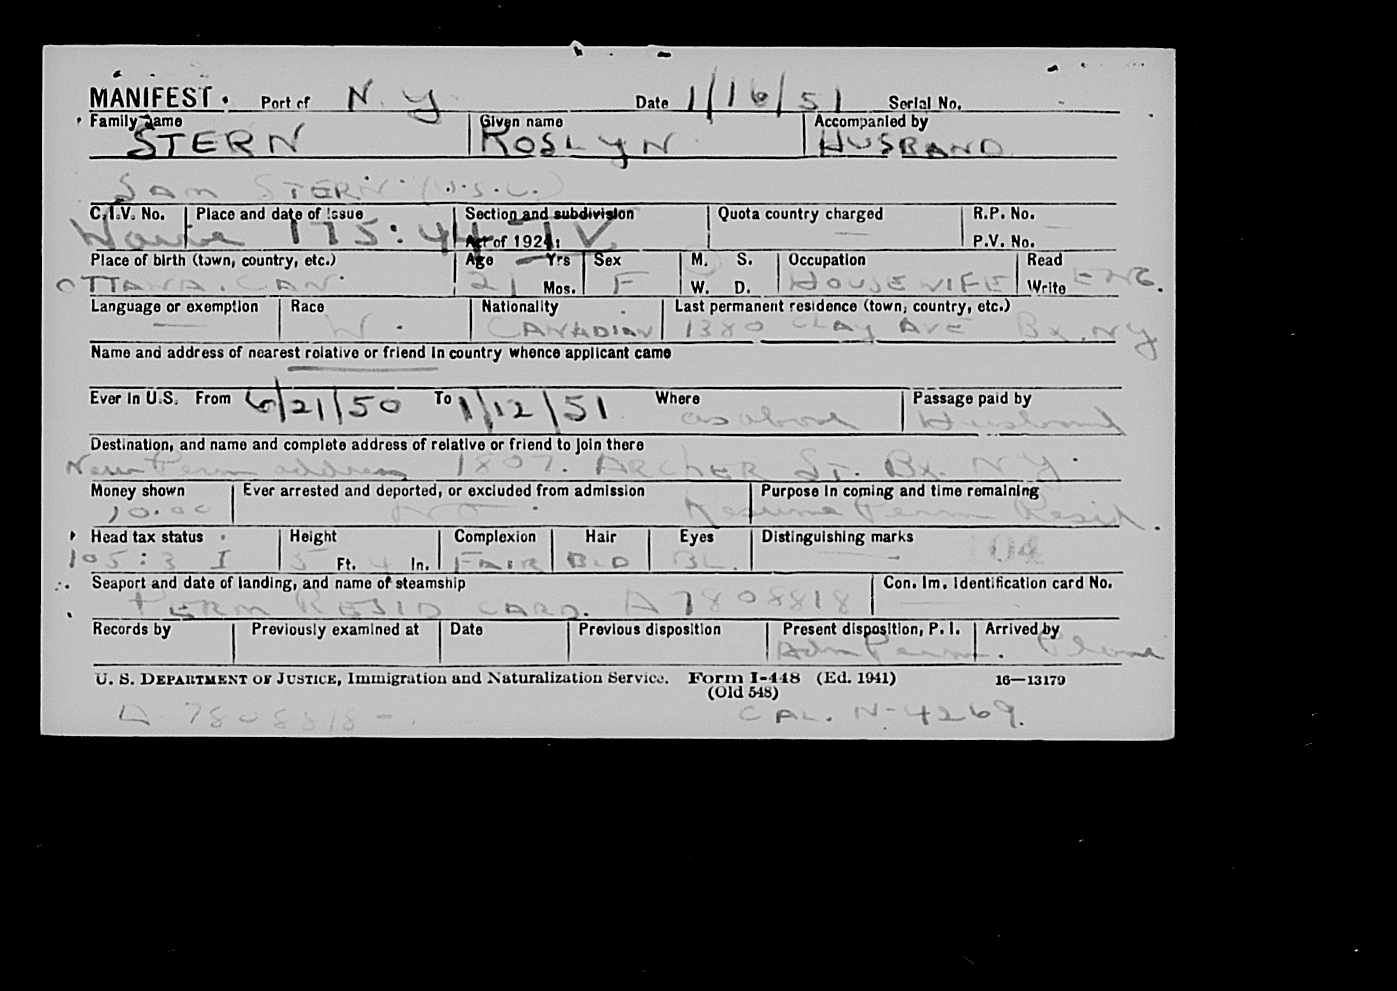 MANIFEST. Port of N. Y Date 1/16/51 Serial No.
Family name STERN Given name ROSLYN Accompanied by HUSBAND
SAM STERN (U.S.C.)
C.I.V. No. Place and date of issue Section and subdivision Quota country charged R.P. No.
175:44 Act of 1924: P.V. No.
Place of birth (town, country, etc.) Age Yrs Sex M. S. Occupation Read
OTTAWA. CAN. 21 Mos. F W. D. HOUSEWIFE Write ENG.
Language or exemption Race Nationality Last permanent residence (town, country, etc.)
W. CANADIAN 1380 CLAY AVE Bx. NY
Name and address of nearest relative or friend in country whence applicant came
Ever in U.S. From 6/21/50 To 1/12/51 Where as above Passage paid by Husband
Destination, and name and complete address of relative or friend to join there
New Perm address 1807. ARCHER ST. Bx. N Y.
Money shown Ever arrested and deported, or excluded from admission Purpose in coming and time remaining
10.00 NO. Resume Perm Resid.
Head tax status Height Complexion Hair Eyes Distinguishing marks
105:3 I 5 Ft. 4 In. FAIR BLD BL. 104
Seaport and date of landing, and name of steamship Con. Im. Identification card No.
PERM RESID CARD. A7808818
Records by Previously examined at Date Previous disposition Present disposition, P. I. Arrived by
Adm Perm. Plane
U. S. DEPARTMENT OF JUSTICE, Immigration and Naturalization Service. Form I-448 (Ed. 1941) 16—13179
(Old 548)
A 7808818- CAL. N-4269.